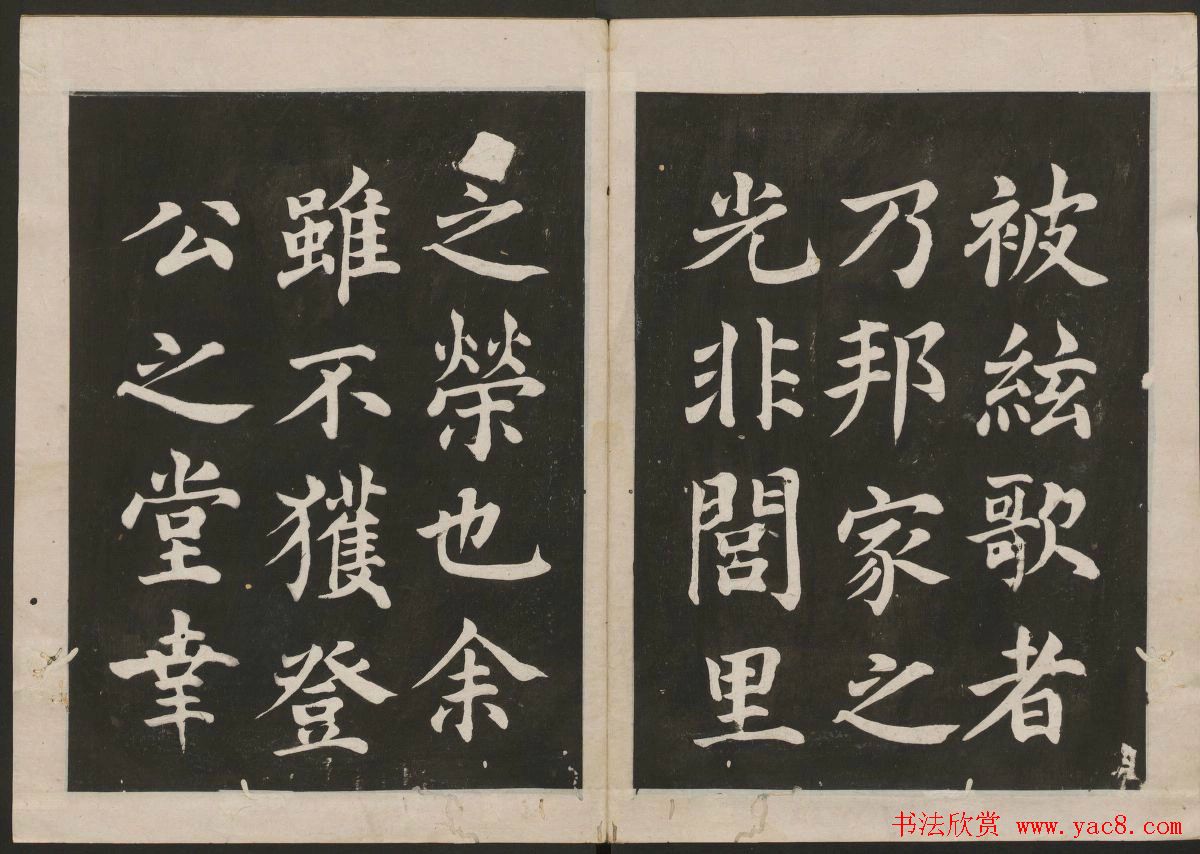 被絃歌者
乃邦家之
光非閭里
之榮也余
雖不獲登
公之堂幸
书法欣赏 www.yac8.com